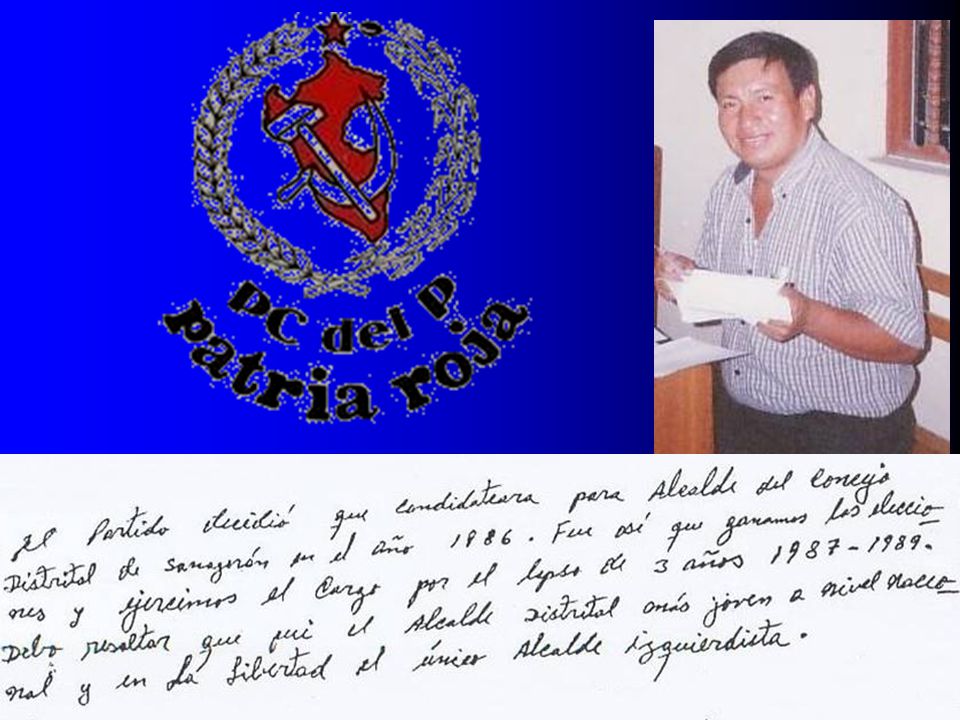 PC del P
patria roja
El Partido decidió que candidateara para Alcalde del Concejo
Distrital de Sanagorán en el año 1986. Fue así que ganamos las eleccio
nes y ejercimos el Cargo por el lapso de 3 años 1987-1989.
Debo resaltar que fui el Alcalde Distrital más joven a nivel nacio
nal y en La Libertad el único Alcalde izquierdista.